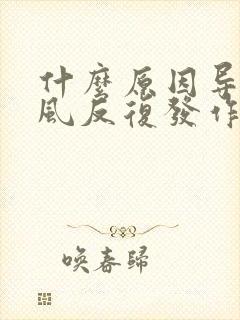 什麼原因导
風反復發作
喚春歸